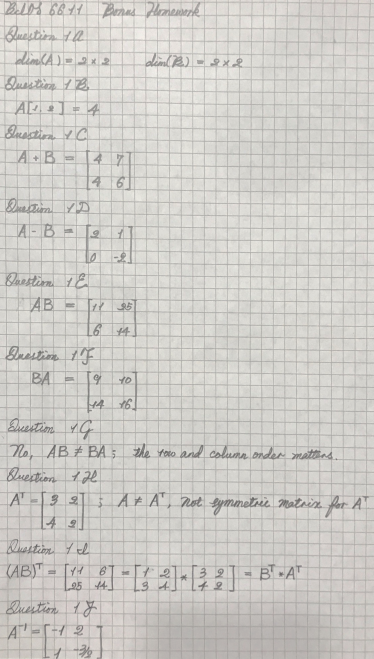 BIOS 6611 Bonus Homework
Question 1A
dim(A) = 2 × 2 dim(B) = 2 × 2
Question 1B
A[1, 2] = 4
Question 1C
A + B = [4 7
4 6]
Question 1D
A - B = [2 1
0 -2]
Question 1E
AB = [11 25
6 14]
Question 1F
BA = [9 10
14 16]
Question 1G
No, AB ≠ BA ; the row and column order matters.
Question 1H
Aᵀ = [3 2 ; A ≠ Aᵀ, not symmetric matrix for Aᵀ
4 2]
Question 1I
(AB)ᵀ = [11 6 = [1 2 * [3 2 = Bᵀ * Aᵀ
25 14] 3 4] 4 2]
Question 1J
A⁻¹ = [-1 2
1 -3/2]